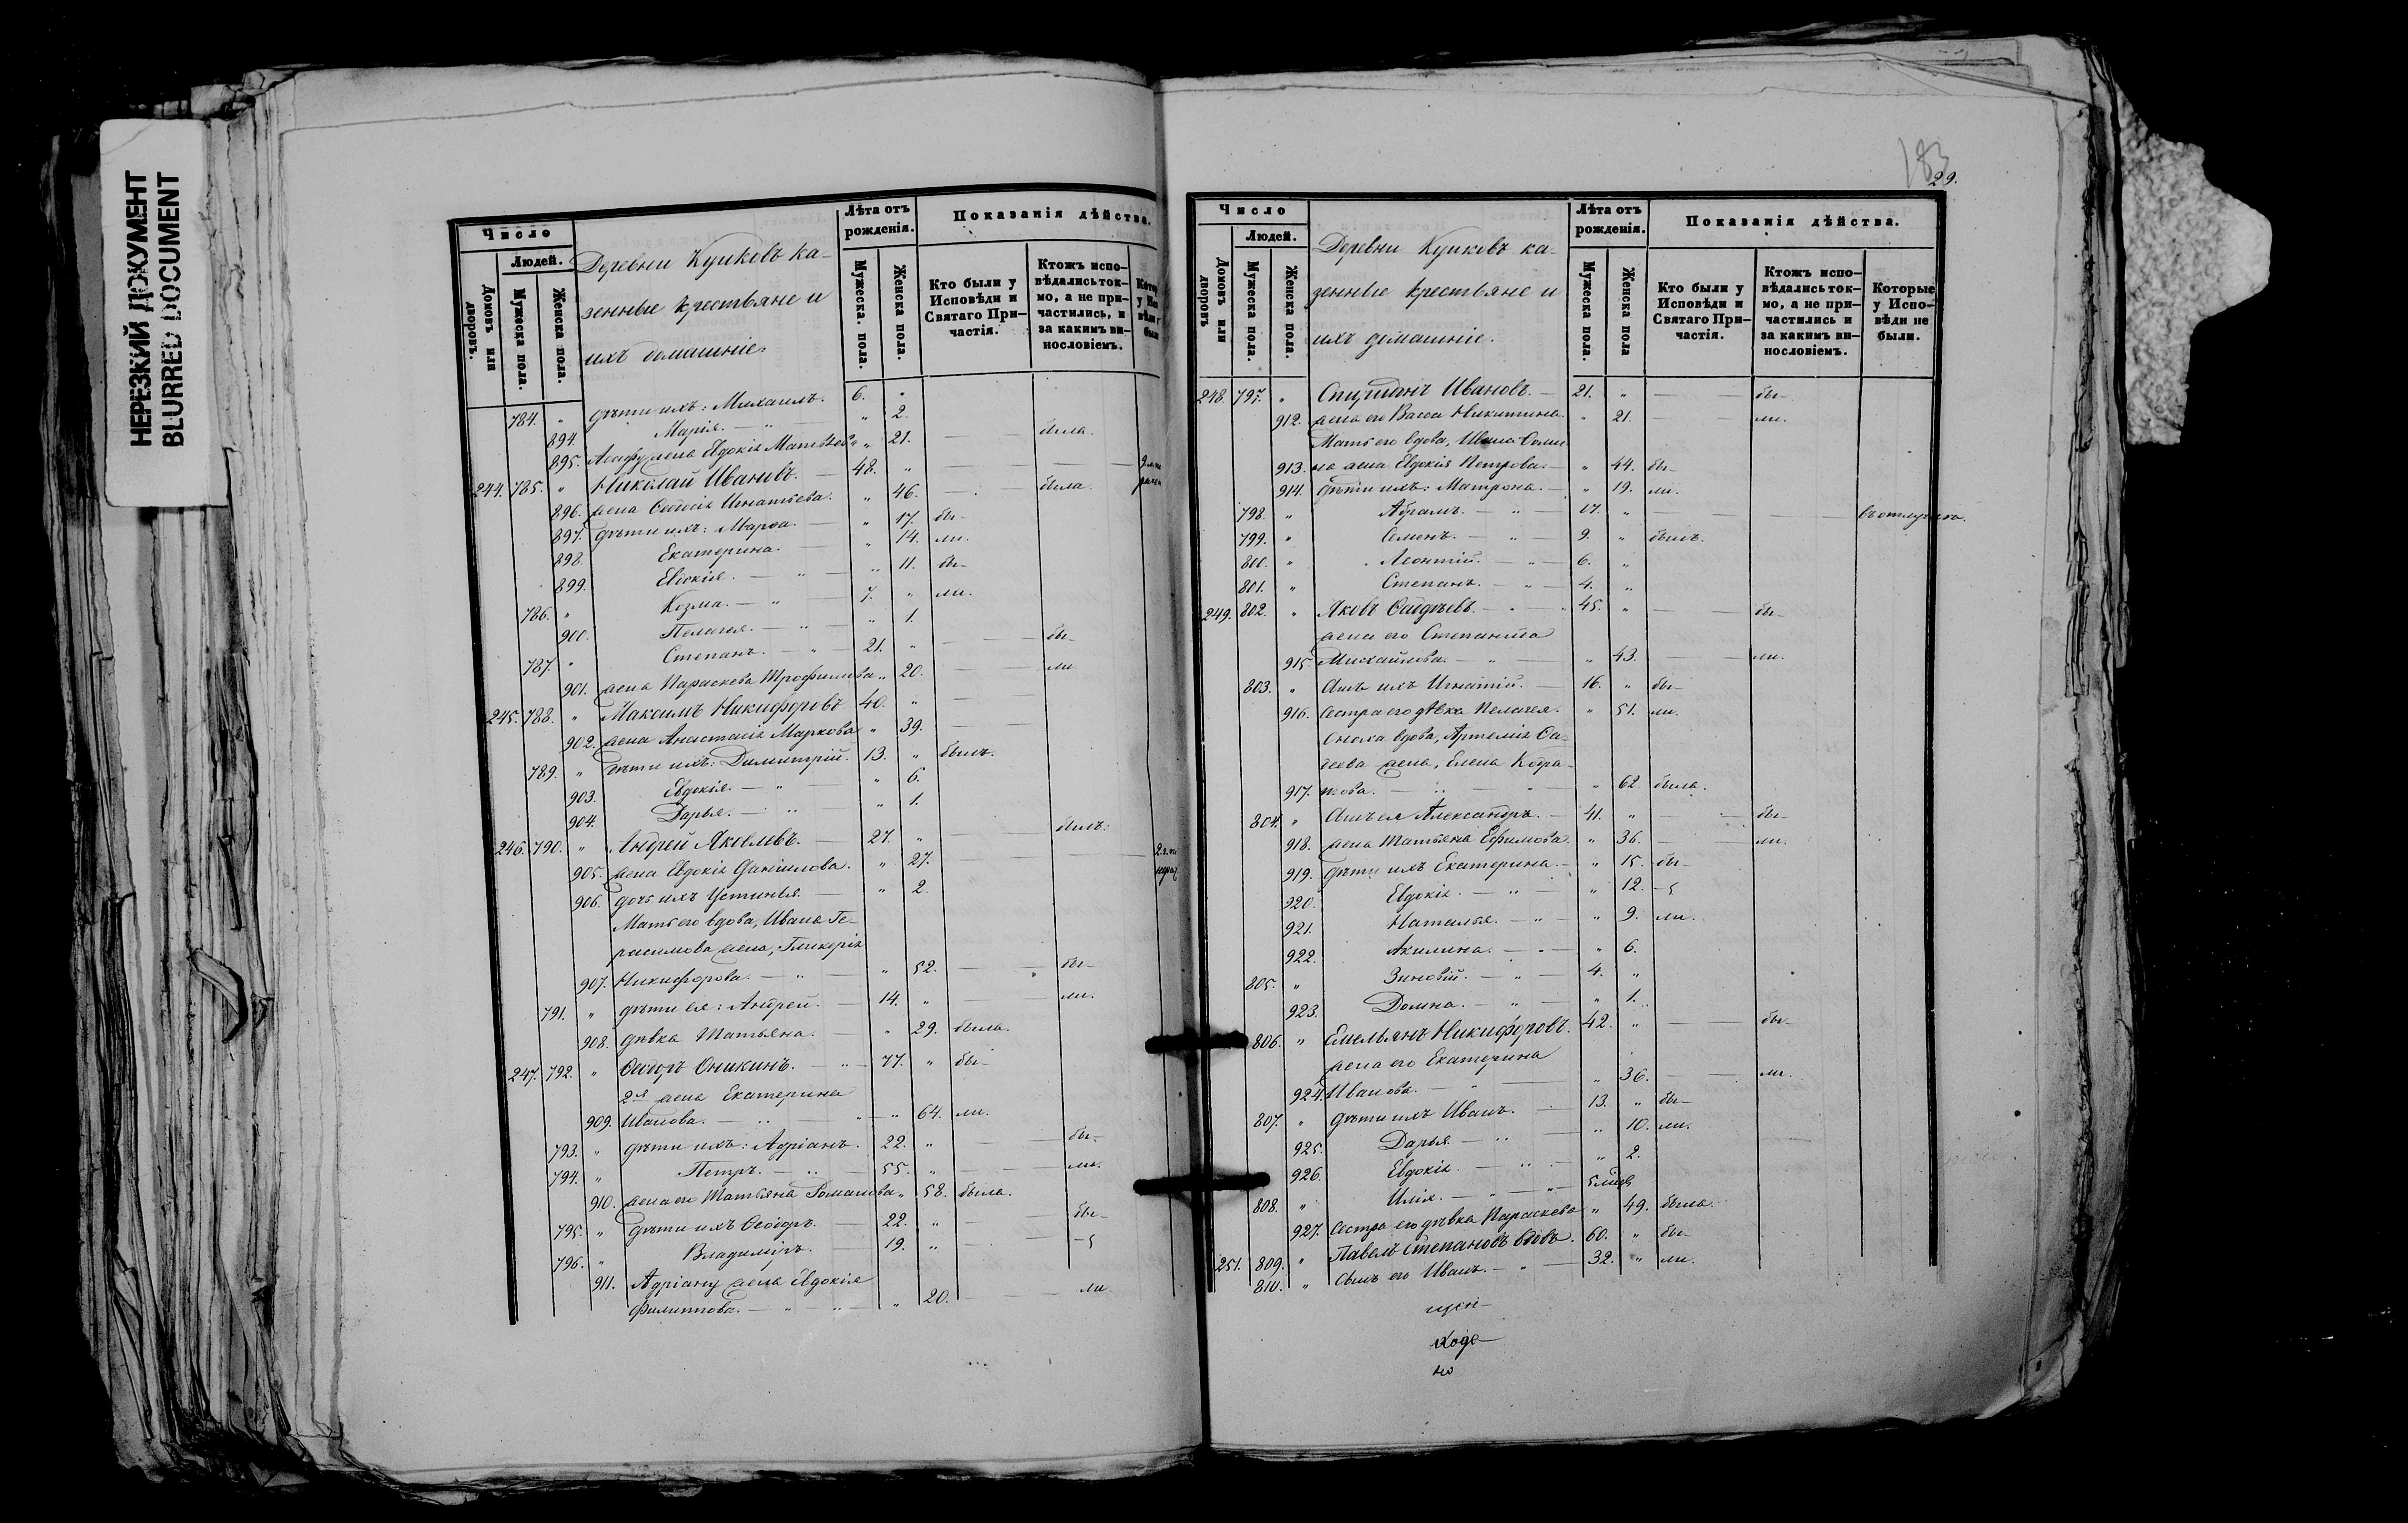 НЕРЕЗКИЙ ДОКУМЕНТ
BLURRED DOCUMENT
Число
Людей.
Домовъ или дворовъ.
Мужеска пола.
Женска пола.
Деревни Куиковъ ка-
зенные крестьяне и
ихъ домашніе.
Лѣта отъ рожденія.
Мужеска. пола.
Женска пола.
Показанія дѣйства.
Кто были у Исповѣди и Святаго При-частія.
Ктожъ испо-вѣдались ток-мо, а не при-частились, и за какимъ ви-нословіемъ.
784. " дѣти ихъ: Михаилъ. 6. "
894. Марія. — " " 2.
895. жена Евдокія " 21. — — была.
244. 785. " Николай Ивановъ. — 48. " — — —
896. жена Игнатьева. " 46. — — была.
897. дѣти ихъ: Марѳа. — " 17. бы-
898. Екатерина. — " 14. ли.
899. " 11. бы-
786. " Козма. — " — 7. " ли.
900. Пелагея. — " — " 1.
787. " Степанъ. — " — 21. " — — бы-
901. жена Параскева Трофимова " 20. — — ли
245. 788. " Максимъ Никифоровъ 40. " — —
902. жена Анастасія Маркова " 39. — —
789. " дѣти ихъ: Димитрій. 13. " былъ.
903. Евдокія. — " — " 6.
904. Дарья. — " — " 1.
246. 790. " Андрей Яковлевъ. — 27. " — — былъ.
905. жена Евдокія Даніилова. " 27. — — —
906. дочь ихъ Устинья. — " 2.
Мать его вдова, Ивана Ге-
расимова жена, Гликерія
907. Никифорова. — " — " 52. — — бы-
791. " дѣти ея: Андрей. — 14. " ли.
908. дѣвка Татьяна. — " 29. была.
247. 792. " Оникинъ. — " — 77. " бы-
2я жена Екатерина
909. Иванова. — " — " 64. ли.
793. " дѣти ихъ: Адріанъ. 22. " — — бы-
794. " Петръ. — " — 55. " — — ли.
910. жена его Татьяна Романова " 58. была.
795. " дѣти ихъ Ѳеодоръ. — 22. " — бы-
796. " Владиміръ. 19. " —
911. Адріану жена Евдокія
Филиппова. — " — " — " 20. — — ли.
183
29.
Число
Людей.
Домовъ или дворовъ
Мужеска пола.
Женска пола.
Деревни Куиковъ ка-
зенные крестьяне и
ихъ домашніе.
Лѣта отъ рожденія.
Мужеска пола.
Женска пола
Показанія дѣйства.
Кто были у Исповѣди и Святаго При-частія.
Ктожъ испо-вѣдались ток-мо, а не при-частились и за какимъ ви-нословіемъ.
Которые у Испо-вѣди не были.
248. 797. " Ивановъ. — 21. " — — бы-
912. жена его Васса Никитина. " 21. — ли.
Мать его вдова, Ивана
913. на жена Евдокія Петрова. — " 44. бы-
914. дѣти ихъ: Матрона. — " 19. ли.
798. " Абрамъ. — " — 17. " — — — въ отлучкѣ.
799. " Семенъ. — " — 9. " былъ.
800. " Леонтій. — " — 6. "
801. " Степанъ. — " — 4. "
249. 802. " Яковъ — " — 45. " — — бы-
жена его Степанида
915. Михайлова. — " — " 43. — — ли.
803. " Сынъ ихъ Игнатій. — 16. " бы-
916. Сестра его дѣвка Пелагея. " 51. ли.
Сноха вдова, Артемія
жена, Елена
917. — " — " — " 62. была.
804. " Сынъ ея Александръ. — 41. " — — бы-
918. жена Татьяна Ефимова. " 36. — ли.
919. дѣти ихъ Екатерина. — " 15. бы-
920. Евдокія. — " — " 12.
921. Наталья. — " — " 9. ли.
922. Акилина. — " — " 6.
805. " Зиновій. — " — 4. "
923. Домна. — " — " 1.
806. " Емельянъ Никифоровъ. 42. " — — бы-
жена его Екатерина
924. Иванова. — " — " 36. — — ли.
807. " дѣти ихъ Иванъ. — 13. " бы-
925. Дарья. — " — " 10. ли.
926. Евдокія. — " — " 2.
808. " Илія. — " — "
927. Сестра его дѣвка Параскева " 49. была.
251. 809. " Павелъ Степановъ вдовъ. 60. " бы-
810. " Сынъ его Иванъ. — " — 32. " ли.